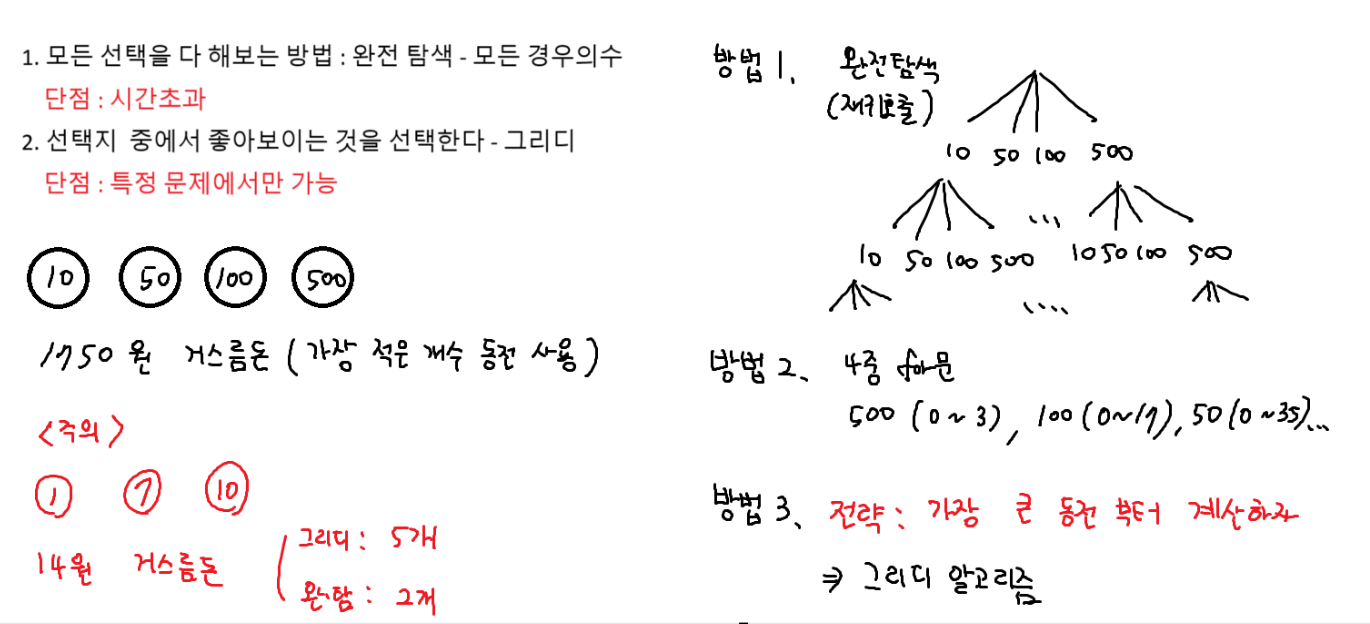 1. 모든 선택을 다 해보는 방법 : 완전 탐색 - 모든 경우의수
단점 : 시간초과
2. 선택지 중에서 좋아보이는 것을 선택한다 - 그리디
단점 : 특정 문제에서만 가능
10 50 100 500
1750원 거스름돈 (가장 적은 개수 동전 사용)
<주의>
1 7 10
14원 거스름돈
그리디 : 5개
완탐 : 2개
방법 1. 완전탐색
(재귀호출)
10 50 100 500
...
10 50 100 500 10 50 100 500
....
방법 2. 4중 for문
500 (0~3), 100 (0~17), 50 (0~35)...
방법 3. 전략 : 가장 큰 동전부터 계산하자
⇒ 그리디 알고리즘